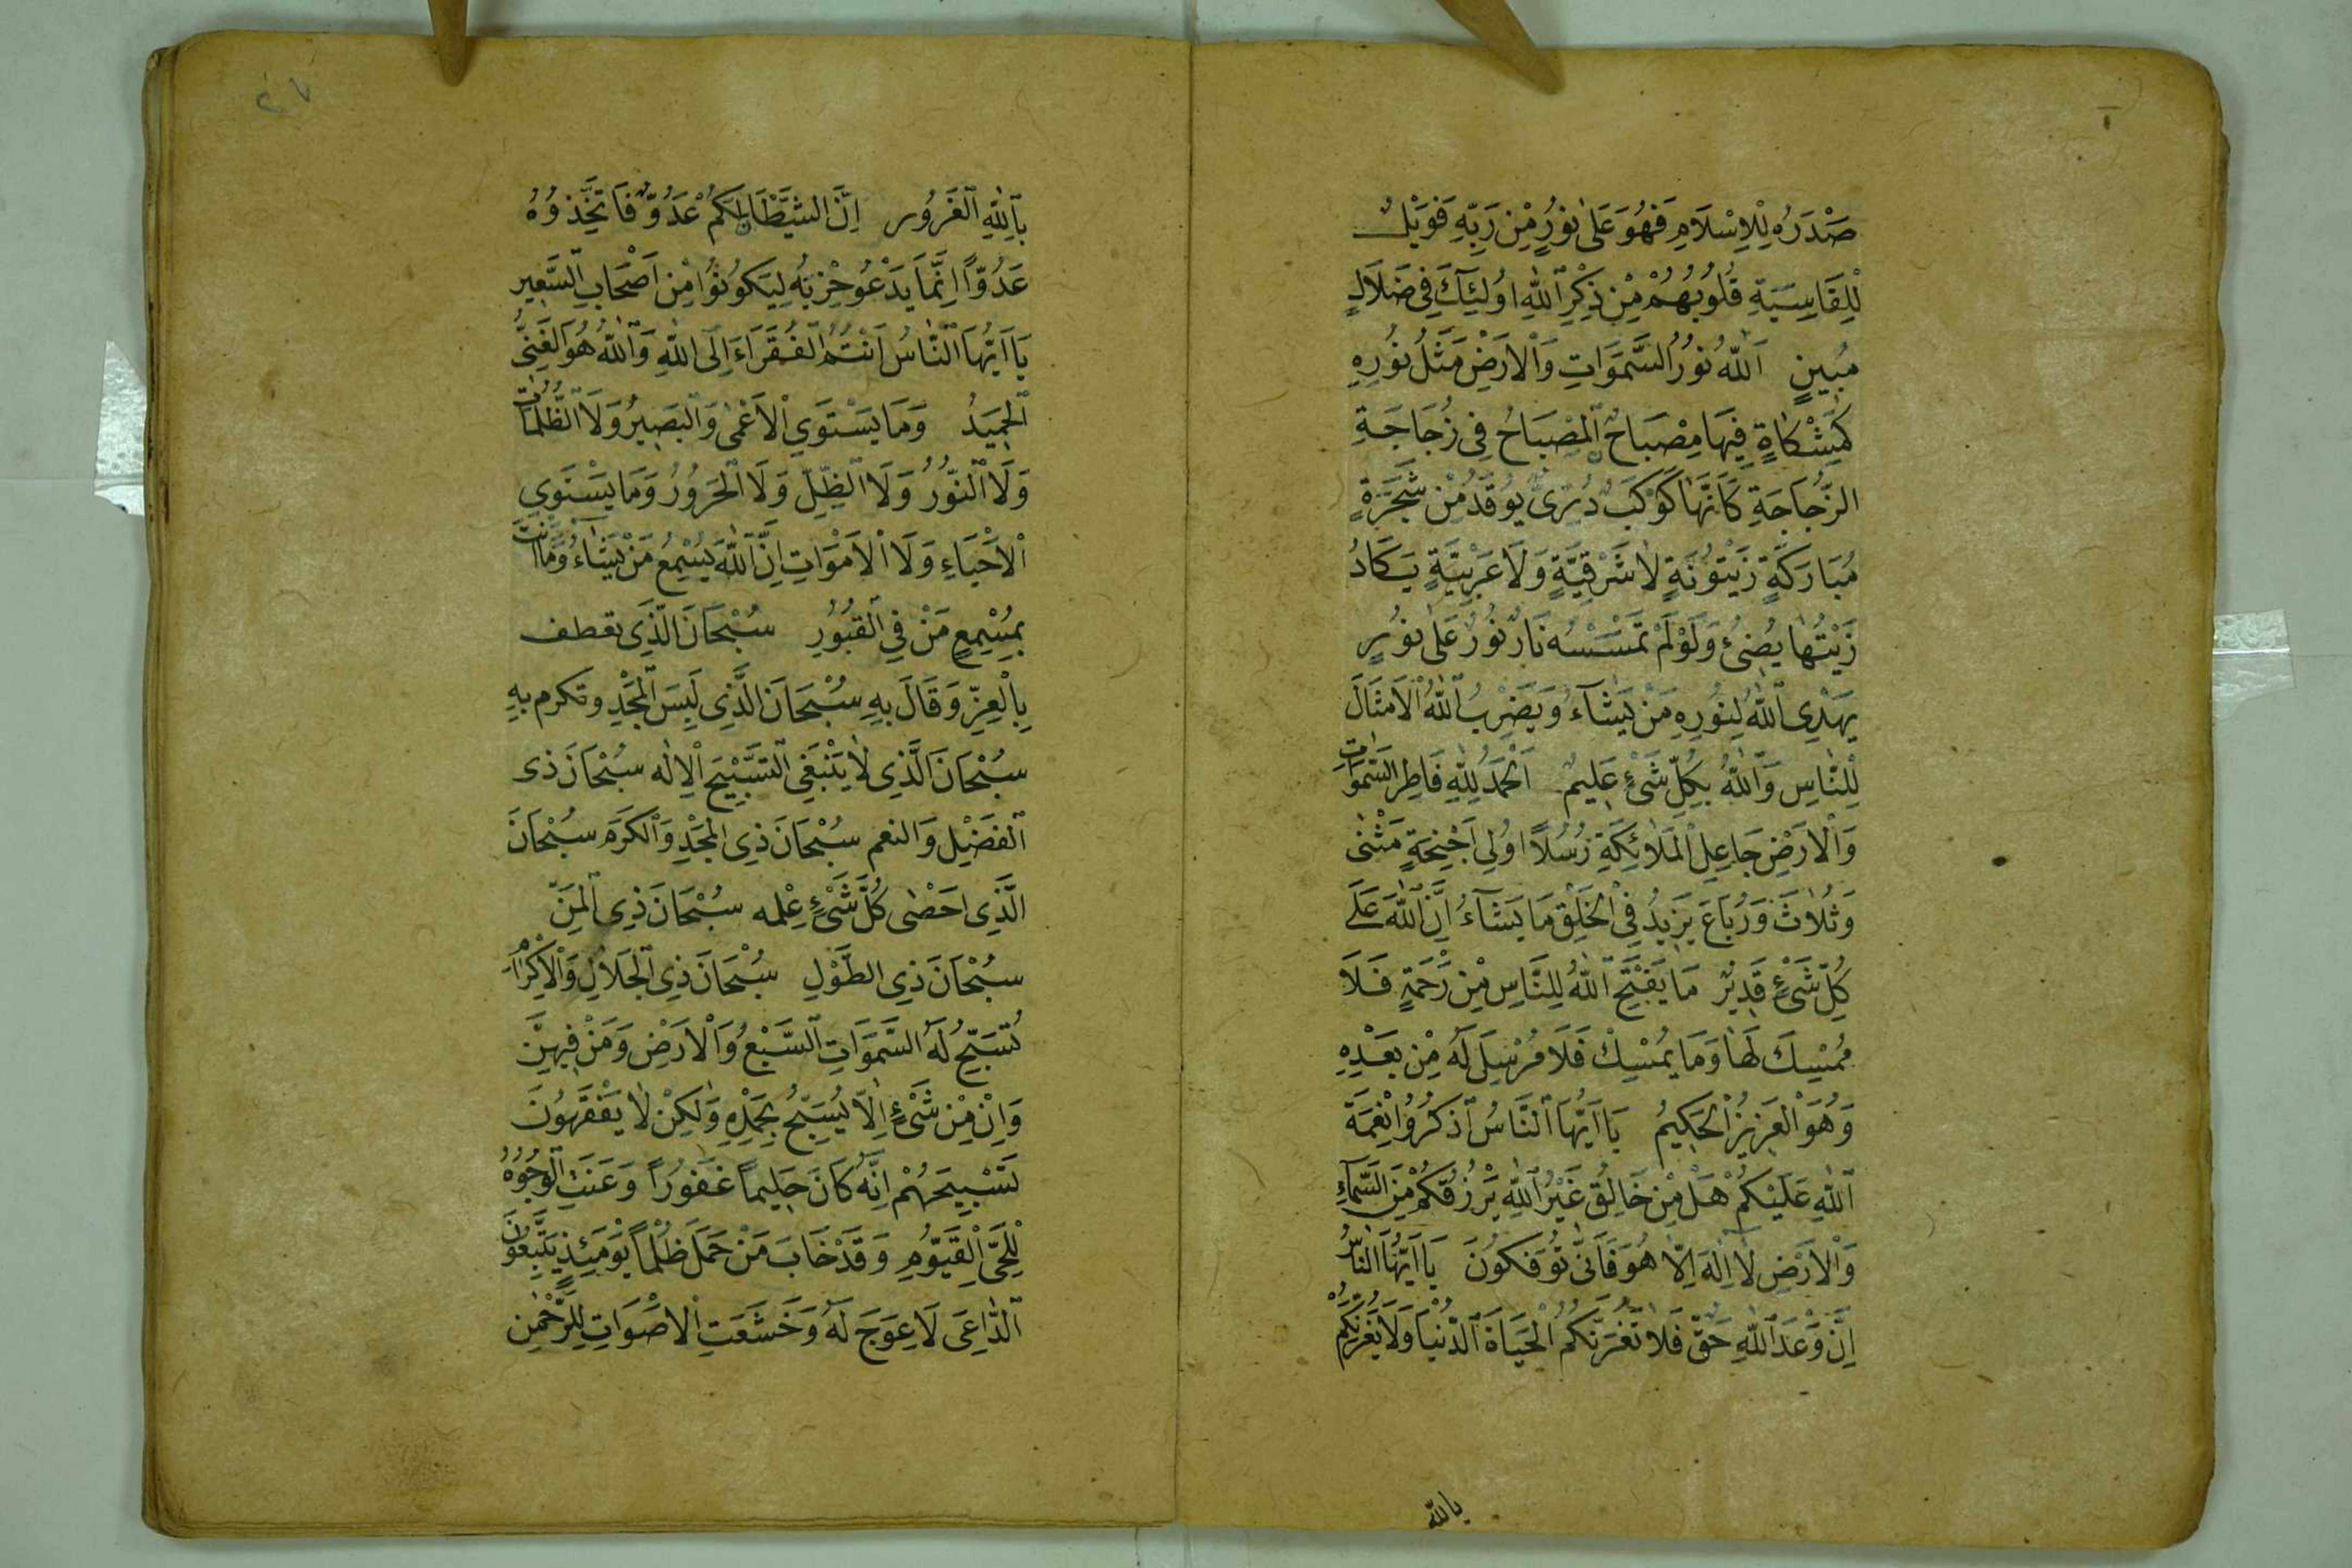 صَدْرَهُ لِلْاِسْلَامِ فَهُوَ عَلٰى نُورٍ مِنْ رَبِّهِ فَوَيْلٌ
لِلْقَاسِيَةِ قُلُوبُهُمْ مِنْ ذِكْرِ اللّٰهِ اُولٰئِكَ فِي ضَلَالٍ
مُبِينٍ اَللّٰهُ نُورُ السَّمَوَاتِ وَالْاَرْضِ مَثَلُ نُورِهِ
كَمِشْكَاةٍ فِيهَا مِصْبَاحٌ الْمِصْبَاحُ فِي زُجَاجَةٍ
الزُّجَاجَةِ كَاَنَّهَا كَوْكَبٌ دُرِّيٌّ يُوقَدُ مِنْ شَجَرَةٍ
مُبَارَكَةٍ زَيْتُونَةٍ لَا شَرْقِيَّةٍ وَلَا غَرْبِيَّةٍ يَكَادُ
زَيْتُهَا يُضِيءُ وَلَوْ لَمْ تَمْسَسْهُ نَارٌ نُورٌ عَلٰى نُورٍ
يَهْدِي اللّٰهُ لِنُورِهِ مَنْ يَشَآءُ وَيَضْرِبُ اللّٰهُ الْاَمْثَالَ
لِلنَّاسِ وَاللّٰهُ بِكُلِّ شَيْءٍ عَلِيمٌ اَلْحَمْدُ لِلّٰهِ فَاطِرِ السَّمَوَاتِ
وَالْاَرْضِ جَاعِلِ الْمَلَائِكَةِ رُسُلًا اُولِي اَجْنِحَةٍ مَثْنٰى
وَثُلَاثَ وَرُبَاعَ يَزِيدُ فِي الْخَلْقِ مَا يَشَآءُ اِنَّ اللّٰهَ عَلٰى
كُلِّ شَيْءٍ قَدِيرٌ مَا يَفْتَحِ اللّٰهُ لِلنَّاسِ مِنْ رَحْمَةٍ فَلَا
مُمْسِكَ لَهَا وَمَا يُمْسِكْ فَلَا مُرْسِلَ لَهُ مِنْ بَعْدِهِ
وَهُوَ الْعَزِيزُ الْحَكِيمُ يَا اَيُّهَا النَّاسُ اذْكُرُوا نِعْمَةَ
اللّٰهِ عَلَيْكُمْ هَلْ مِنْ خَالِقٍ غَيْرُ اللّٰهِ يَرْزُقُكُمْ مِنَ السَّمَآءِ
وَالْاَرْضِ لَا اِلٰهَ اِلَّا هُوَ فَاَنّٰى تُؤْفَكُونَ يَا اَيُّهَا النَّاسُ
اِنَّ وَعْدَ اللّٰهِ حَقٌّ فَلَا تَغُرَّنَّكُمُ الْحَيَاةُ الدُّنْيَا وَلَا يَغُرَّنَّكُمْ
بالله
بِاللّٰهِ الْغَرُور اِنَّ الشَّيْطَانَ لَكُمْ عَدُوٌّ فَاتَّخِذُوهُ
عَدُوًّا اِنَّمَا يَدْعُو حِزْبَهُ لِيَكُونُوا مِنْ اَصْحَابِ السَّعِيرِ
يَا اَيُّهَا النَّاسُ اَنْتُمُ الْفُقَرَاءُ اِلَى اللّٰهِ وَاللّٰهُ هُوَ الْغَنِيُّ
الْحَمِيدُ وَمَا يَسْتَوِي الْاَعْمٰى وَالْبَصِيرُ وَلَا الظُّلُمَاتُ
وَلَا النُّورُ وَلَا الظِّلِّ وَلَا الْحَرُورُ وَمَا يَسْتَوِي
الْاَحْيَاءِ وَلَا الْاَمْوَاتِ اِنَّ اللّٰهَ يُسْمِعُ مَنْ يَشَاءُ وَمَا اَنْتَ
بِمُسْمِعٍ مَنْ فِي الْقُبُورِ سُبْحَانَ الَّذِي تعطف
بِالْعِزِّ وَقَالَ بِهِ سُبْحَانَ الَّذِي لَبِسَ الْمَجْدِ وتكرم بِهِ
سُبْحَانَ الَّذِي لَا يَنْبَغِي التَّسْبِيحَ اِلَّا لَهُ سُبْحَانَ ذِى
الْفَضْلِ وَالنعم سُبْحَانَ ذِى الْمَجْدِ وَالْكَرَمِ سُبْحَانَ
الَّذِي اَحْصٰى كُلَّ شَيْءٍ عِلْمه سُبْحَانَ ذِي الْمَنِّ
سُبْحَانَ ذِي الطَّوْلِ سُبْحَانَ ذِي الْجَلَالِ وَالْاِكْرَامِ
تُسَبِّحُ لَهُ السَّمَوَاتِ السَّبْعُ وَالْاَرْضِ وَمَنْ فِيهِنَّ
وَاِنْ مِنْ شَيْءٍ اِلَّا يُسَبِّحُ بِحَمْدِهِ وَلٰكِنْ لَا يَفْقَهُونَ
تَسْبِيحَهُمْ اِنَّهُ كَانَ حَلِيماً غَفُوراً وَعَنَتِ الْوُجُوهُ
لِلْحَيِّ الْقَيُّومِ وَقَدْ خَابَ مَنْ حَمَلَ ظُلْماً يَوْمَئِذٍ يَتَّبِعُونَ
الدَّاعِيَ لَا عِوَجَ لَهُ وَخَشَعَتِ الْاَصْوَاتِ لِلرَّحْمٰنِ